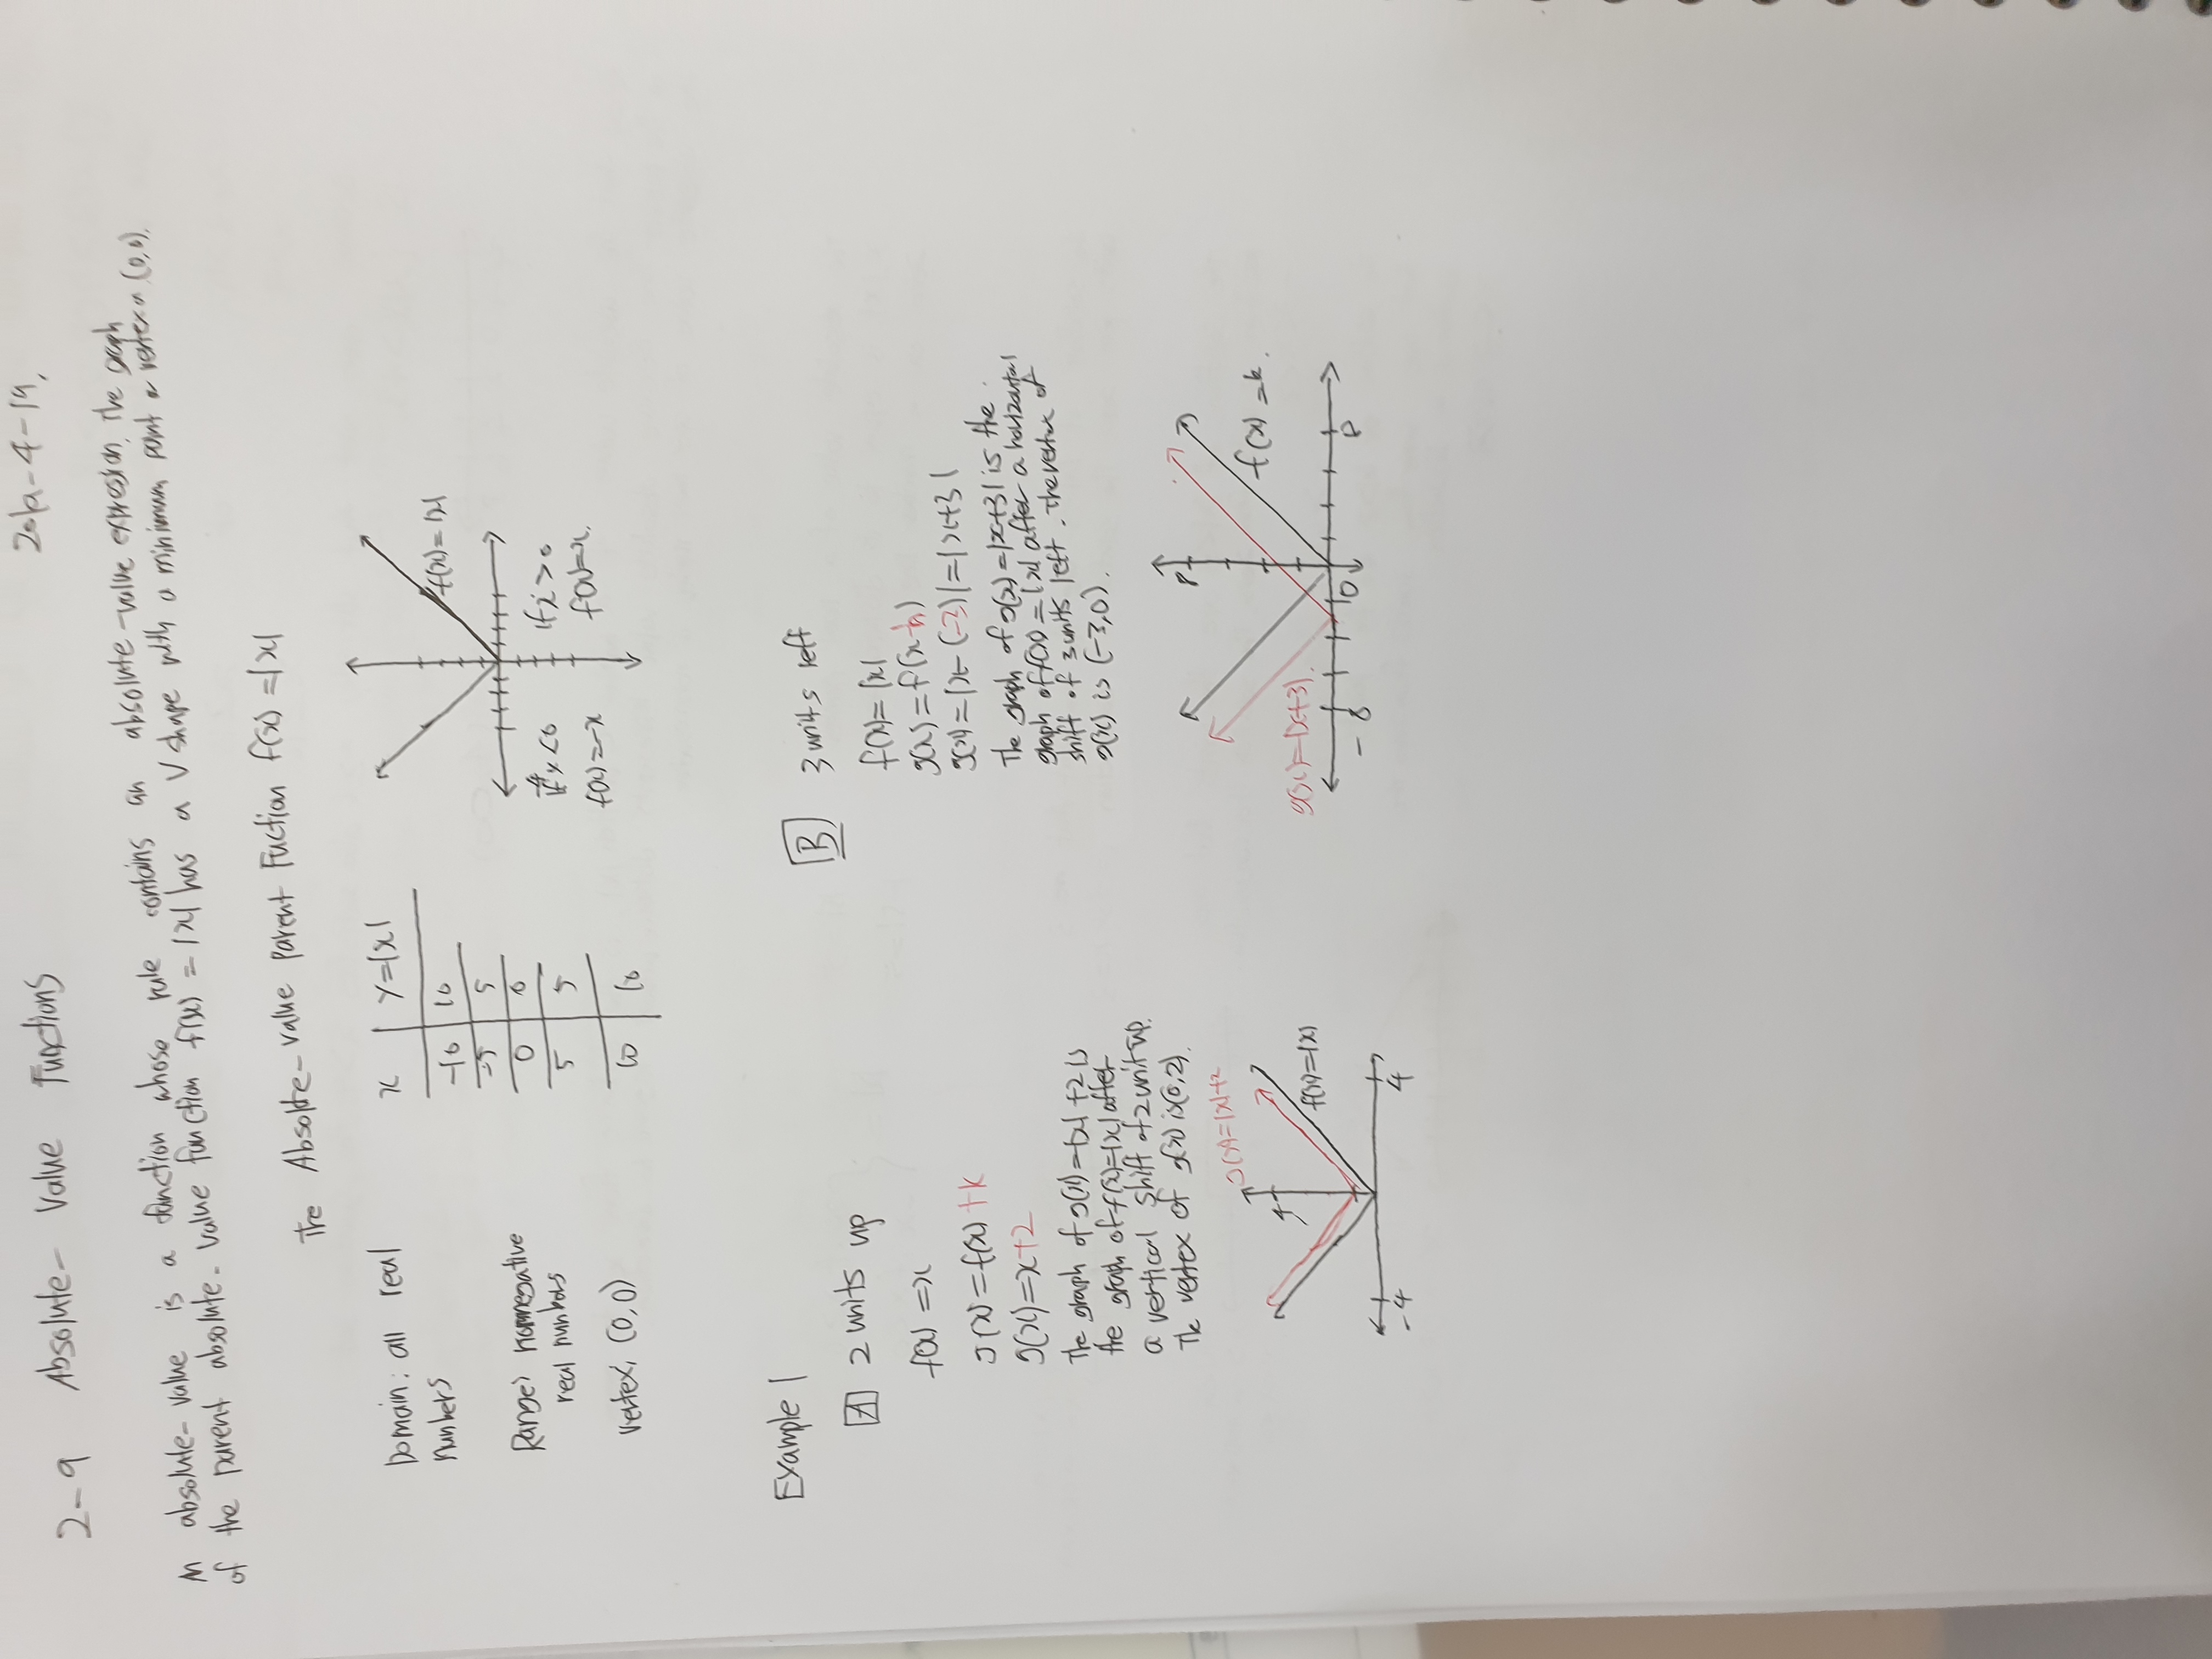 2-9 Absolute-Value Functions
An absolute-value is a function whose rule contains an absolute-value expression. The graph
of the parent absolute-value function f(x)=|x| has a V shape with a minimum point or vertex a (0,0).
The Absolute-value parent Fuction f(x)=|x|
Domain: all real
numbers
Range: nonnegative
real numbers
vertex: (0,0)
x y=|x|
-10 10
-5 5
0 0
5 5
10 10
f(x)=|x|
If x<0
f(x)=-x
If x>0
f(x)=x.
Example 1
A 2 units up
f(x)=x
g(x)=f(x)+k
g(x)=x+2
The graph of g(x)=|x|+2 is
the graph of f(x)=|x| after
a vertical shift of 2 unit up.
The vertex of g(x) is (0,2).
g(x)=|x|+2
4
f(x)=|x|
-4 4
B 3 units left
f(x)=|x|
g(x)=f(x-h)
g(x)=|x-(-3)|=|x+3|
The graph of g(x)=|x+3| is the
graph of f(x)=|x| after a horizontal
shift of 3 units left. The vertex of
g(x) is (-3,0).
8
g(x)=|x+3|
-8 0 8